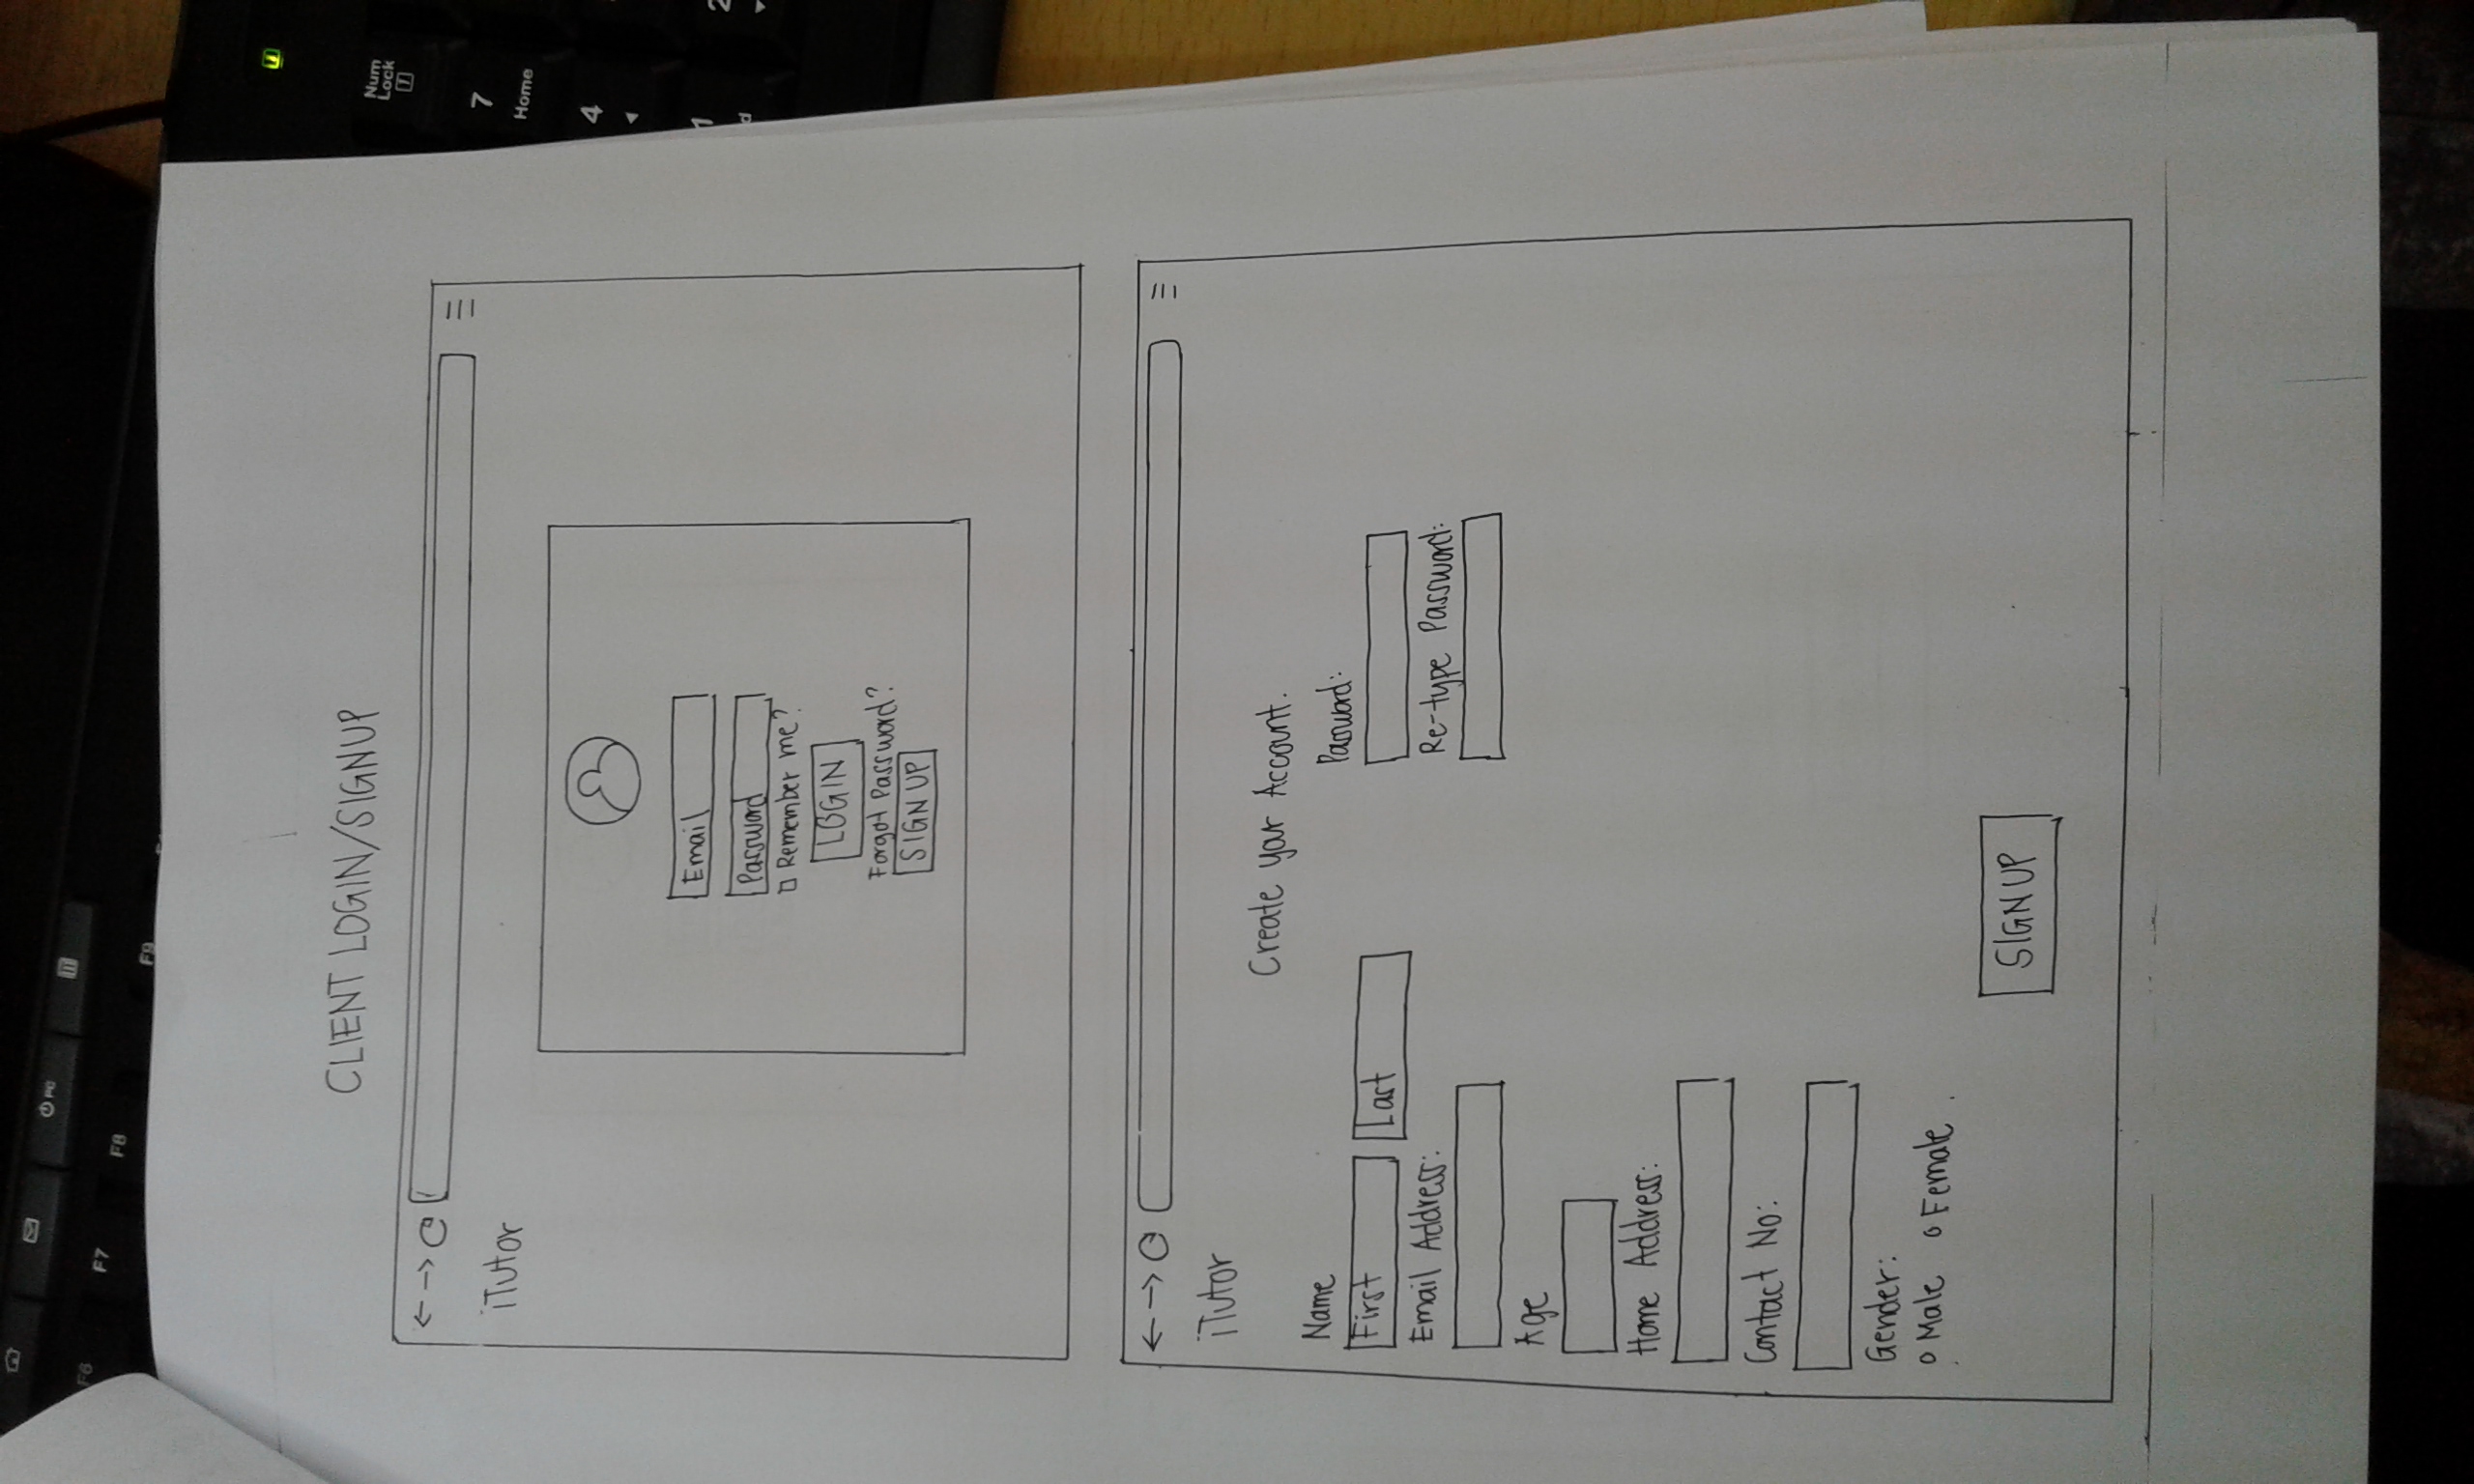 PC
F6
F7
F8
F9
Num
Lock
7
Home
4
1
2
CLIENT LOGIN/SIGNUP
iTutor
Email
Password
Remember me?
LOGIN
Forgot Password?
SIGN UP
iTutor
Create your Account.
Name
First Last
Email Address:
Age
Home Address:
Contact No:
Gender:
Male Female
Password:
Re-type Password:
SIGN UP